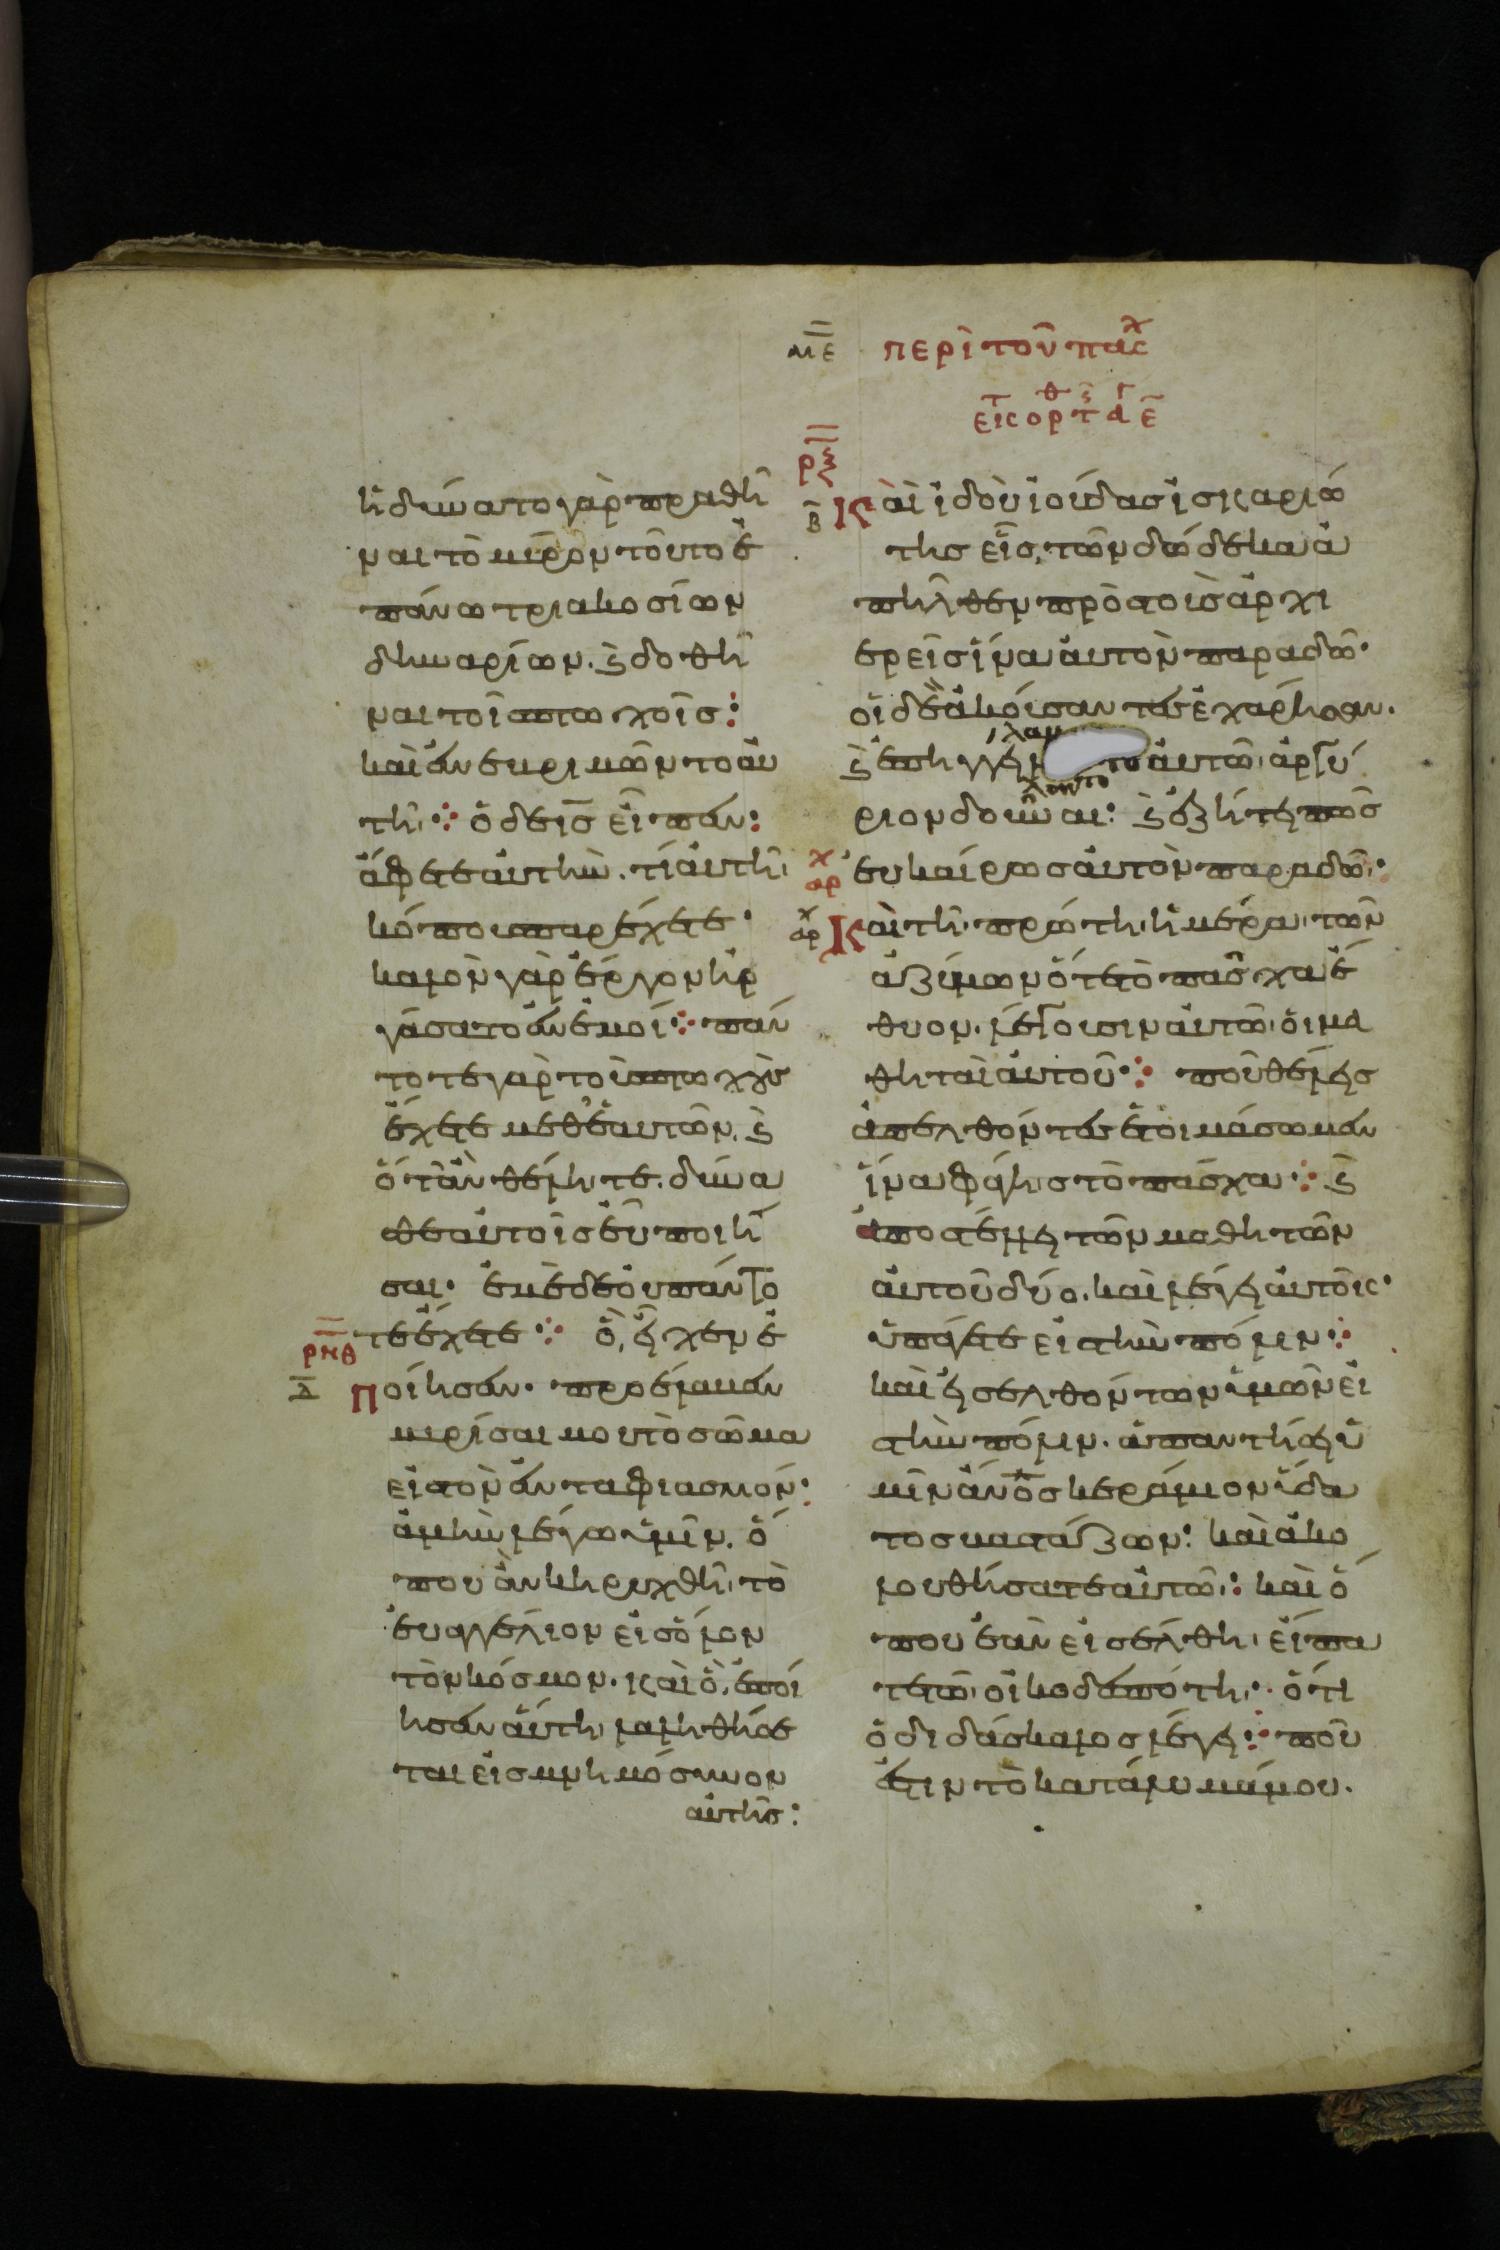 μ̅ε̅ περὶ τοῦ πασχ
εἰς ορτ α ε̅
ἠδύνατο γὰρ πραθῆ
ναι τὸ μῦρον τοῦτο ἐ
πάνω τριακοσίων
δηναρίων. ϗ δοθῆ
ναι τοῖς πτωχοῖς:
καὶ ἐνευριμῶντο αὐ
τῆ· ὁ δὲ ι̅ς̅ εἶπεν:
ἄφετε αὐτήν. τί αὐτῆ
κόπους παρέχετε·
καλὸν γὰρ ἔργον ἠρ
γάσατο ἐν ἐμοί· πάν
τοτε γὰρ τοὺς πτωχοὺς
ἔχετε μεθ' ἑαυτῶν. ϗ
ὅταν θέλητε. δύνα
σθε αὐτοῖς εὖ ποιῆ
σαι· ἐμὲ δὲ οὐ πάντο
τε ἔχετε· ὃ, εἶχεν ἐ
ρ̅ν̅θ̅
δ̅ ποίησεν· προέλαμεν
μυρίσαι μου τὸ σῶμα
εἰς τὸν ἐνταφιασμόν:
ἀμὴν λέγω ὑμῖν. ὅ
που ἂν κηρυχθῆ τὸ
εὐαγγέλιον εἰς ὅλον
τὸν κόσμον. καὶ ὃ, ἐποί
ησεν αὕτη λαληθήσε
ται εἰς μνημόσυνον
αὐτῆς:
ρ̅ξ̅
β̅ Καὶ ἰδοὺ ἰούδας ἰσκαριώ
της εἷς, τῶν δώδεκα ἀ
πῆλθεν πρὸς τοὺς ἀρχι
ερεῖς ἵνα αὐτὸν παραδῶ·
οἱ δὲ ἀκούσαντες ἐχάρησαν.
ϗ ἐπηγγείλαντο αὐτῶ ἀργύ
ριον δοῦναι: ϗ ἐζήτει πῶς
εὐκαίρως αὐτὸν παραδῶ:
αρχ Καὶ τῆ πρώτη ἡμέρα τῶν
ἀζύμων ὅτε τὸ πάσχα ἔ
θυον. λέγουσιν αὐτῶ οἱ μα
θηταὶ αὐτοῦ· ποῦ θέλεις
ἀπελθόντες ἑτοιμάσωμεν
ἵνα φάγης τὸ πάσχα· ϗ
ἀποστέλλει τῶν μαθητῶν
αὐτοῦ δύο. καὶ λέγει αὐτοῖς·
ὑπάγετε εἰς τὴν πόλιν·
καὶ εἰσελθόντων ὑμῶν εἰ
ς τὴν πόλιν. ἀπαντήσει ὑ
μῖν ἄν̅ο̅ς̅ κεράμιον ὕδα
τος βαστάζων: καὶ ἀκο
λουθήσατε αὐτῶ: καὶ ὅ
που ἐὰν εἰσέλθη εἴπα
τε τῶ οἰκοδεσπότη· ὅτι
ὁ διδάσκαλος λέγει· ποῦ
ἐστιν τὸ κατάλυμά μου.